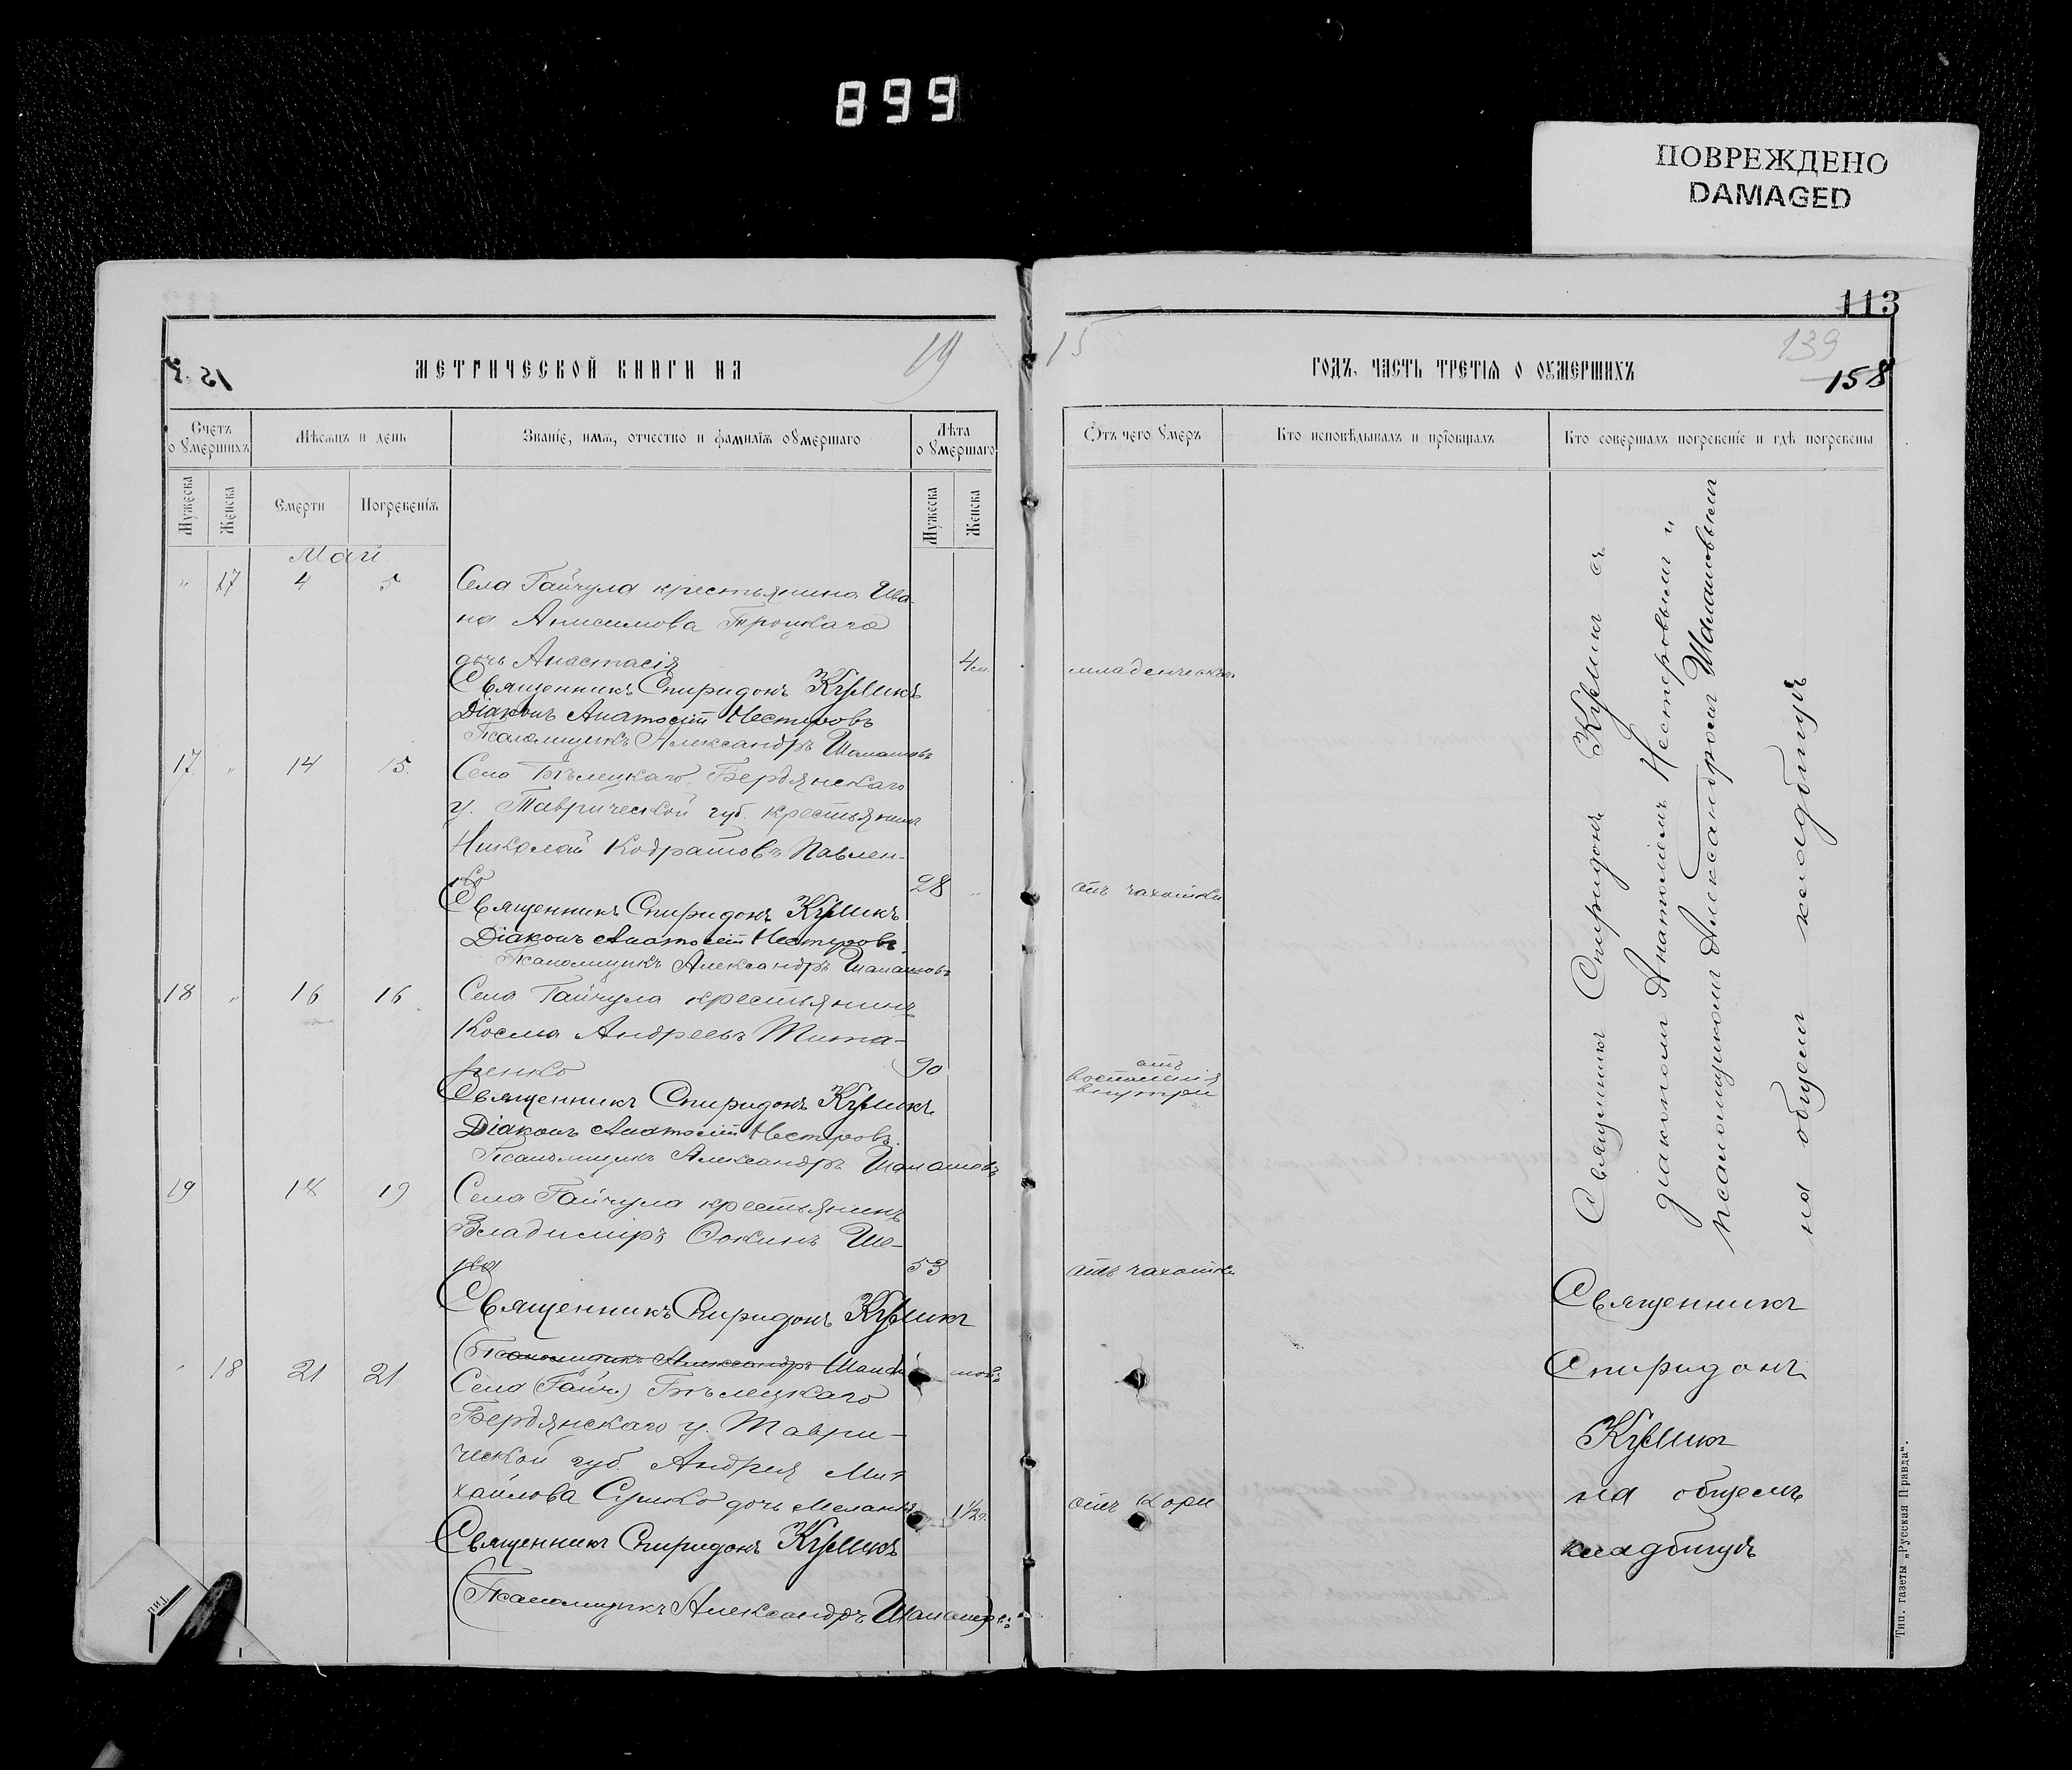 899
ПОВРЕЖДЕНО
DAMAGED
113
139
158
МЕТРИЧЕСКОЙ КНИГИ НА 19
15 ГОДЪ, ЧАСТЬ ТРЕТІЯ О ОУМЕРШИХЪ
Счетъ оумершихъ
Мѣсяцъ и день
Званіе, имя, отчество и фамилія оумершаго
Лѣта оумершаго
Отъ чего умеръ
Кто исповѣдывалъ и пріобщалъ
Кто совершалъ погребеніе и гдѣ погребены
Мужеска
Женска
Смерти
Погребенія
Мужеска
Женска
Май
" 17 4 5 Села Гайчула крестьянина Ива-
на Анисимова Троцкаго
дочь Анастасія 4 м.
Священникъ Спиридонъ Куликъ
Діаконъ Анатолій Нестеровъ
Псаломщикъ Александръ
17 " 14 15. Села Бѣлецкаго, Бердянскаго
у. Таврической губ. крестьянинъ
Николай Кодратовъ Павлен-
ко 28 " отъ чахотки
Священникъ Спиридонъ Куликъ
Діаконъ Анатолій Нестеровъ
Псаломщикъ Александръ
18 " 16 16 Села Гайчула крестьянинъ
Косма Андреевъ Тита-
ренко 90 отъ
воспаленія
внутри
Священникъ Спиридонъ Куликъ
Діаконъ Анатолій Нестеровъ.
Псаломщикъ Александръ
19 18 19 Села Гайчула крестьянинъ
Владиміръ Ше-
53 отъ чахотки
Священникъ Спиридонъ Куликъ
(Псаломщикъ Александръ
18 21 21 Села (Гайч.) Бѣлецкаго
Бердянскаго у. Таври-
ческой губ. Андрея Ми-
хайлова Сушко дочь Меланія 1½ г. отъ кори
Священникъ Спиридонъ Куликъ
(Псаломщикъ Александръ
Священникъ Спиридонъ Куликъ съ
діакономъ Анатоліемъ Нестеровымъ и
псаломщикомъ Александромъ
на общемъ кладбищѣ
Священникъ
Спиридонъ
Куликъ
на общемъ
кладбищѣ
Тип. газеты „Русская Правда“.